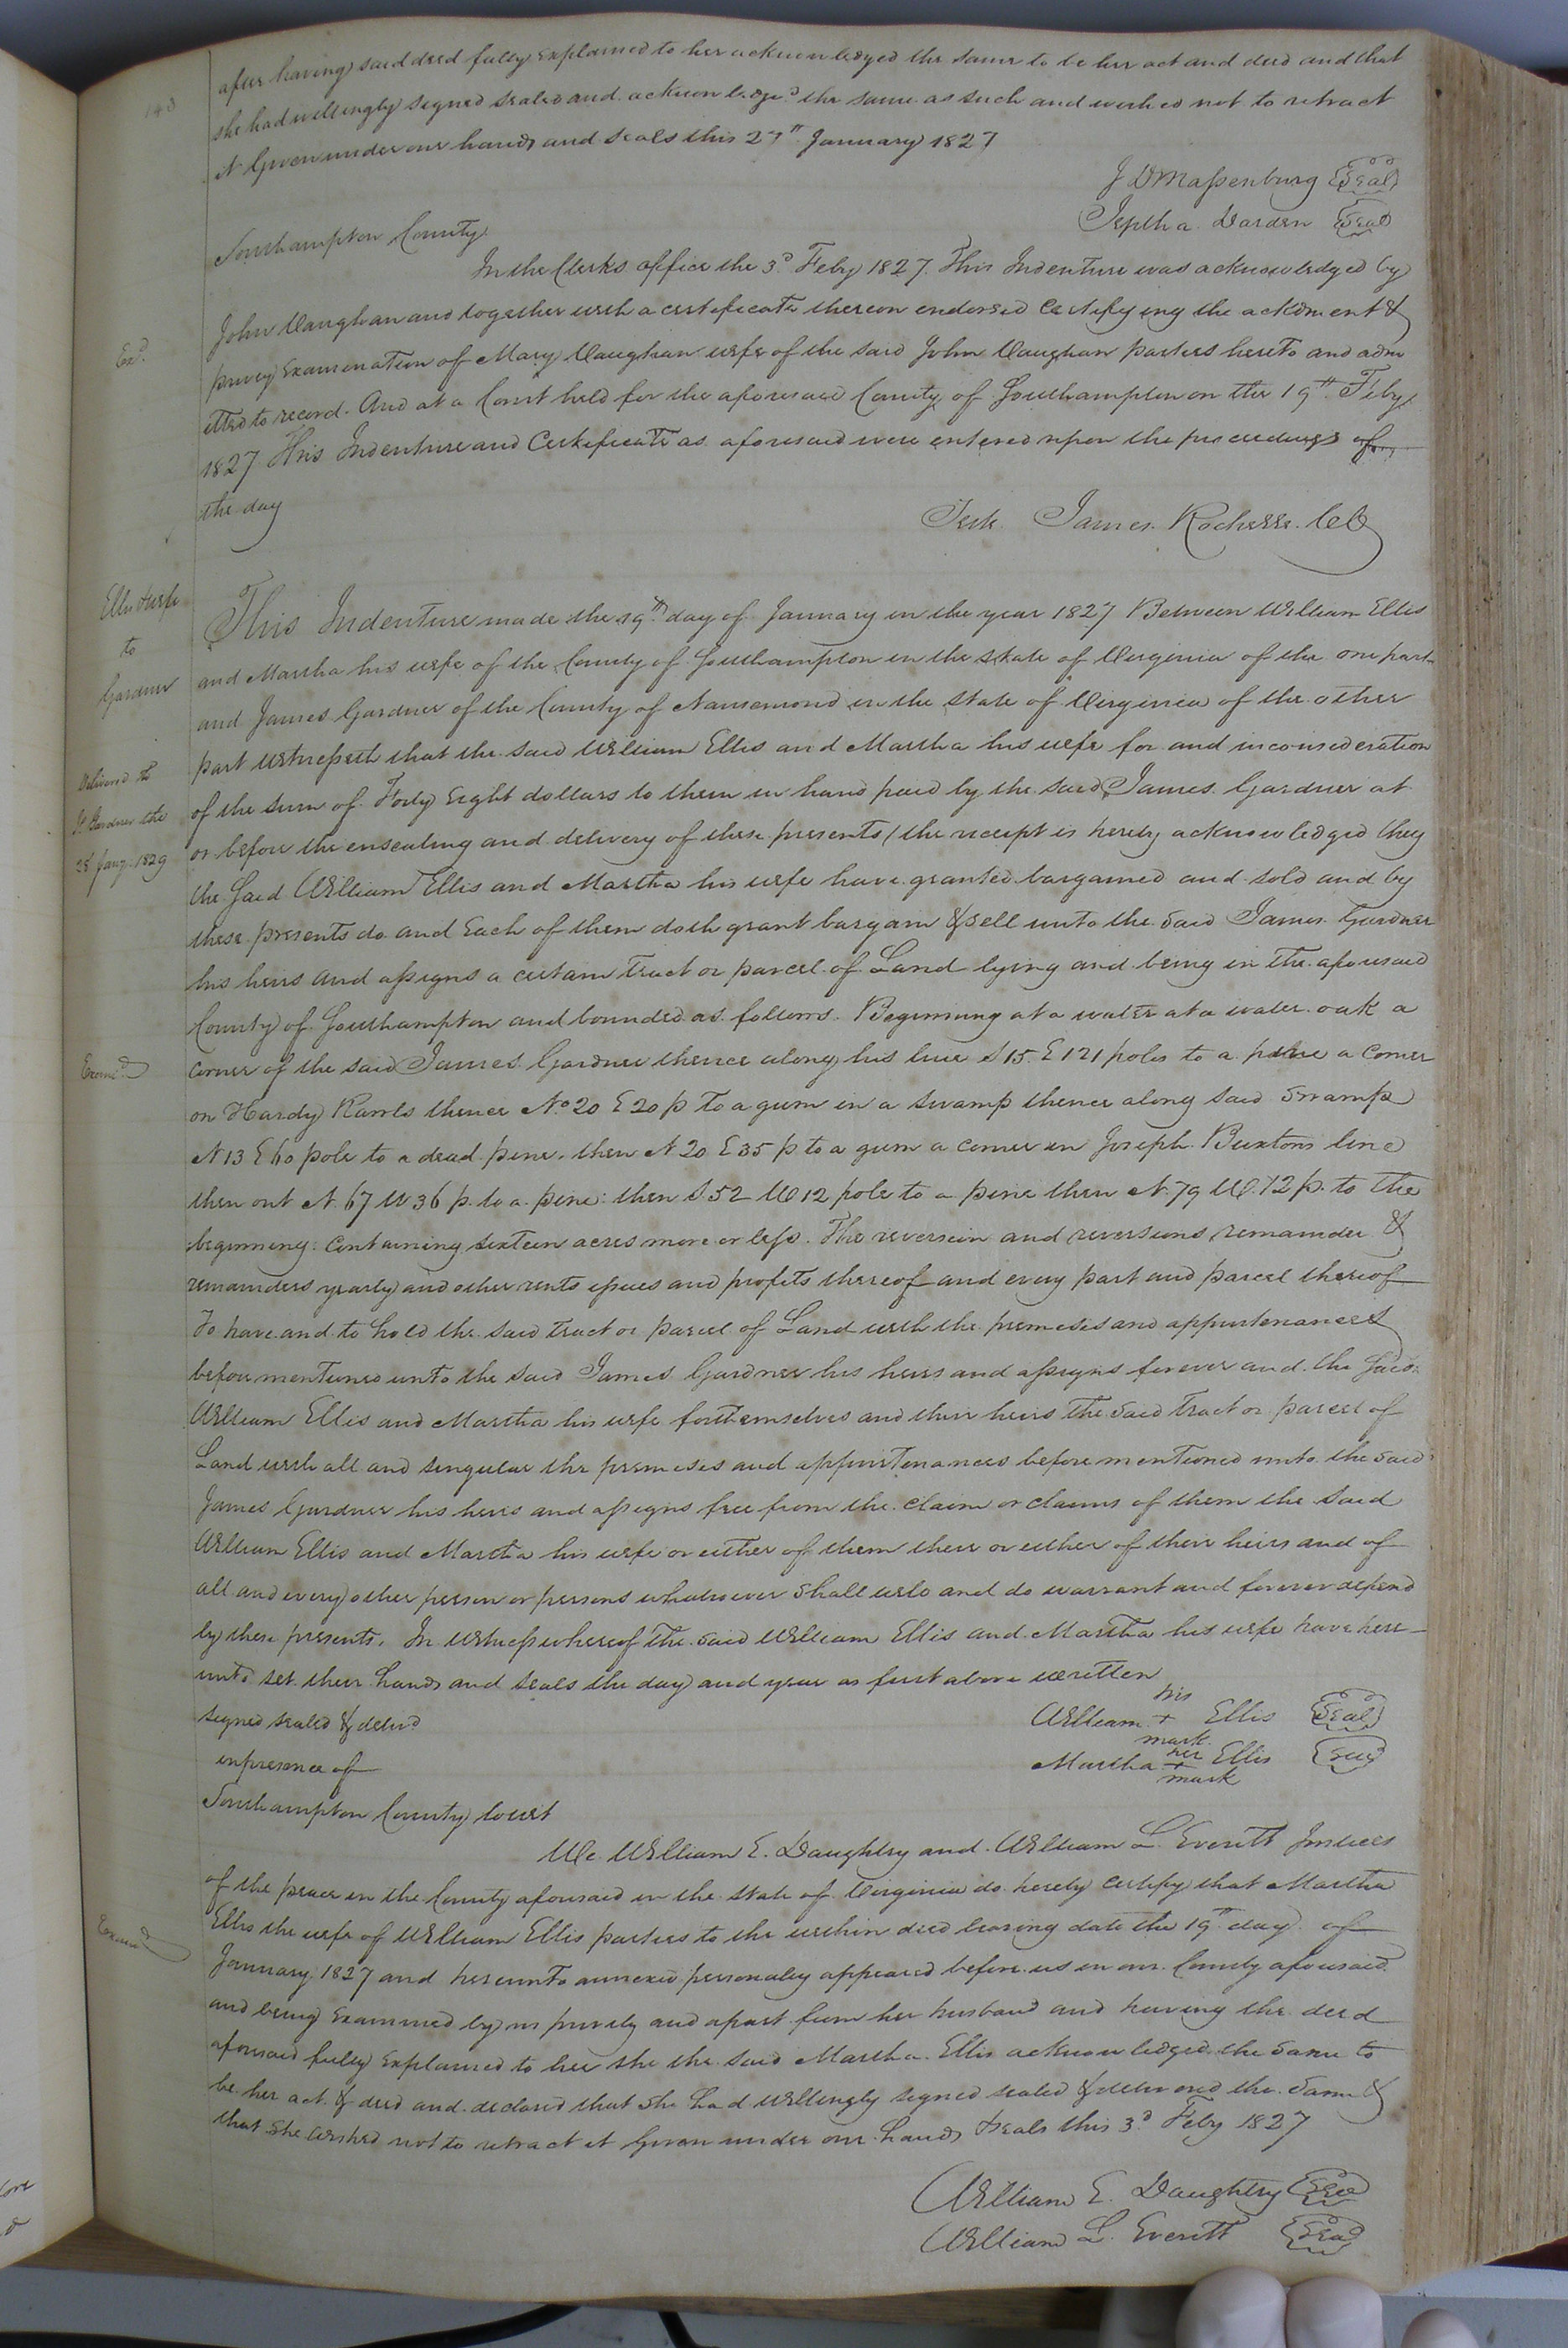 143
after having said deed fully explained to her acknowledged the same to be her act and deed and that
she had willingly signed sealed and acknowledged the same as such and wished not to retract
it Given under our hands and seals this 27th January 1827
J D Massenburg (Seal)
Jeptha Darden (Seal)
Southampton County
In the Clerks office the 3d Feby 1827. This Indenture was acknowledged by
John Vaughan and together with a certificate thereon endorsed Certifying the ackdment &
Exd.
privy Examination of Mary Vaughan wife of the said John Vaughan parties hereto and adm
itted to record. And at a Court held for the aforesaid County of Southampton on the 19th Feby
1827 This Indenture and Certificate as aforesaid were entered upon the proceedings of
the day
Teste James Rochelle. CC
Ellis & wife
to
Gardner
This Indenture made the 19th day of January in the year 1827 Between William Ellis
and Martha his wife of the County of Southampton in the State of Virginia of the one part
and James Gardner of the County of Nansemond in the State of Virginia of the other
part witnesseth that the said William Ellis and Martha his wife for and in consideration
Delivered to
Js Gardner the
28 Jany. 1829
of the sum of Forty Eight dollars to them in hand paid by the said James Gardner at
or before the ensealing and delivery of these presents (the receipt is hereby acknowledged they
the said William Ellis and Martha his wife have granted bargained and sold and by
these presents do and Each of them doth grant bargain & sell unto the said James Gardner
his heirs and assigns a certain Tract or parcel of Land lying and being in the aforesaid
County of Southampton and bounded as follows. Beginning at a water at a water oak a
Examd
corner of the said James Gardner thence along his line S 15 E 121 poles to a pine a Corner
on Hardy Rawls thence No 20 E 20 p to a gum in a swamp thence along said Swamp
N 13 E 60 pole to a dead pine. then N 20 E 35 p to a gum a corner in Joseph Buxtons line
then out N. 67 W 36 p. to a pine: then S 52 W 12 pole to a pine then N. 79 W. 72 p. to the
beginning: Containing sixteen acres more or less. The reversion and reversions remainder &
remainders yearly and other rents issues and profits thereof and every part and parcel thereof
To have and to hold the said Tract or parcel of Land with the premises and appurtenances
before mentioned unto the said James Gardner his heirs and assigns forever and the said
William Ellis and Martha his wife for themselves and their heirs the said Tract or parcel of
Land with all and singular the premises and appurtenances before mentioned unto the said
James Gardner his heirs and assigns free from the claim or claims of them the said
William Ellis and Martha his wife or either of them their or either of their heirs and of
all and every other person or persons whatsoever shall will and do warrant and forever defend
by these presents. In witness whereof the said William Ellis and Martha his wife have here
unto set their hands and seals the day and year as first above written
signed sealed & delivd
in presence of
his
William + Ellis (Seal)
mark
her
Martha + Ellis (seal)
mark
Southampton County Court
We William E. Daughtry and William L. Everitt Justices
of the peace in the County aforesaid in the State of Virginia do hereby certify that Martha
Examd
Ellis the wife of William Ellis parties to the within deed bearing date the 19th day of
January 1827 and hereunto annexed personally appeared before us in our County aforesaid
and being Examined by us privily and apart from her husband and having the deed
aforesaid fully Explained to her she the said Martha Ellis acknowledged the same to
be her act & deed and declared that she had willingly signed sealed & delivered the same &
that she wished not to retract it Given under our hands & seals this 3d Feby 1827
William E. Daughtry (Seal)
William L. Everitt (Seal)